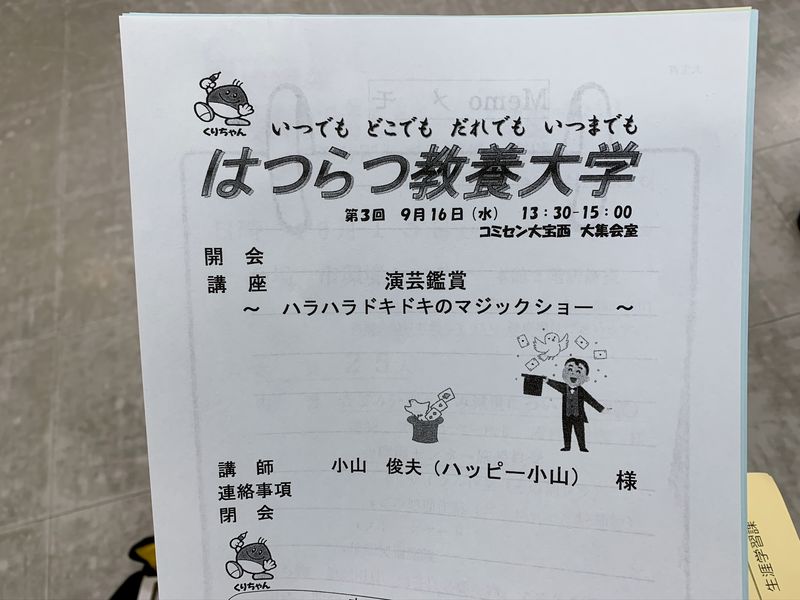 くりちゃん
いつでも どこでも だれでも いつまでも
はつらつ教養大学
第3回 9月16日(水) 13:30-15:00
コミセン大宝西 大集会室
開 会
講 座 演芸鑑賞
～ ハラハラドキドキのマジックショー ～
講 師 小山 俊夫(ハッピー小山) 様
連絡事項
閉 会
くりちゃん
生涯学習課
Memo メ モ